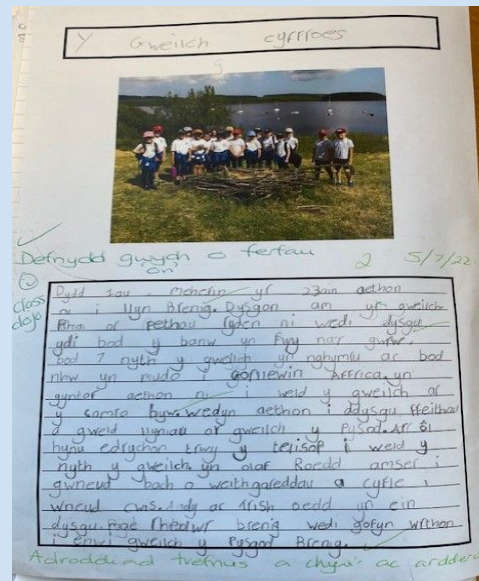 Y Gweilch cyrrroes
Defnydd gwych o ferfau
"on"
2 5/7/22
Class dojo
Dydd Iau, Mehefin yr 23ain aethon
ni i llyn Brenig. Dysgon am yr gweilch
Rhai or pethau ryden ni wedi dysgu
ydi bod y banw yn fwy na'r gwrw,
bod 7 nyth y gweilch yn nghymru ac bod
nhw yn mudo i gorllewin Affrica. yn
gyntaf aethon ni i weld y gweilch ar
y camra byw. wedyn aethon i ddysgu ffeithiau
a gweld lluniau or gweilch y Pysgod. Arr ôl
hynu edrychon trwy y telisgop i weld y
nyth y gweilch. yn olaf Roedd amser i
gwneud bach o weithgareddau a cyfle i
wneud cwis. Andy ac Trish oedd yn ein
dysgu. brenig wedi gofyn wrthon
i enwi gweilch y Pysgod Brenig.
Adroddiad trefnus a chywir ac